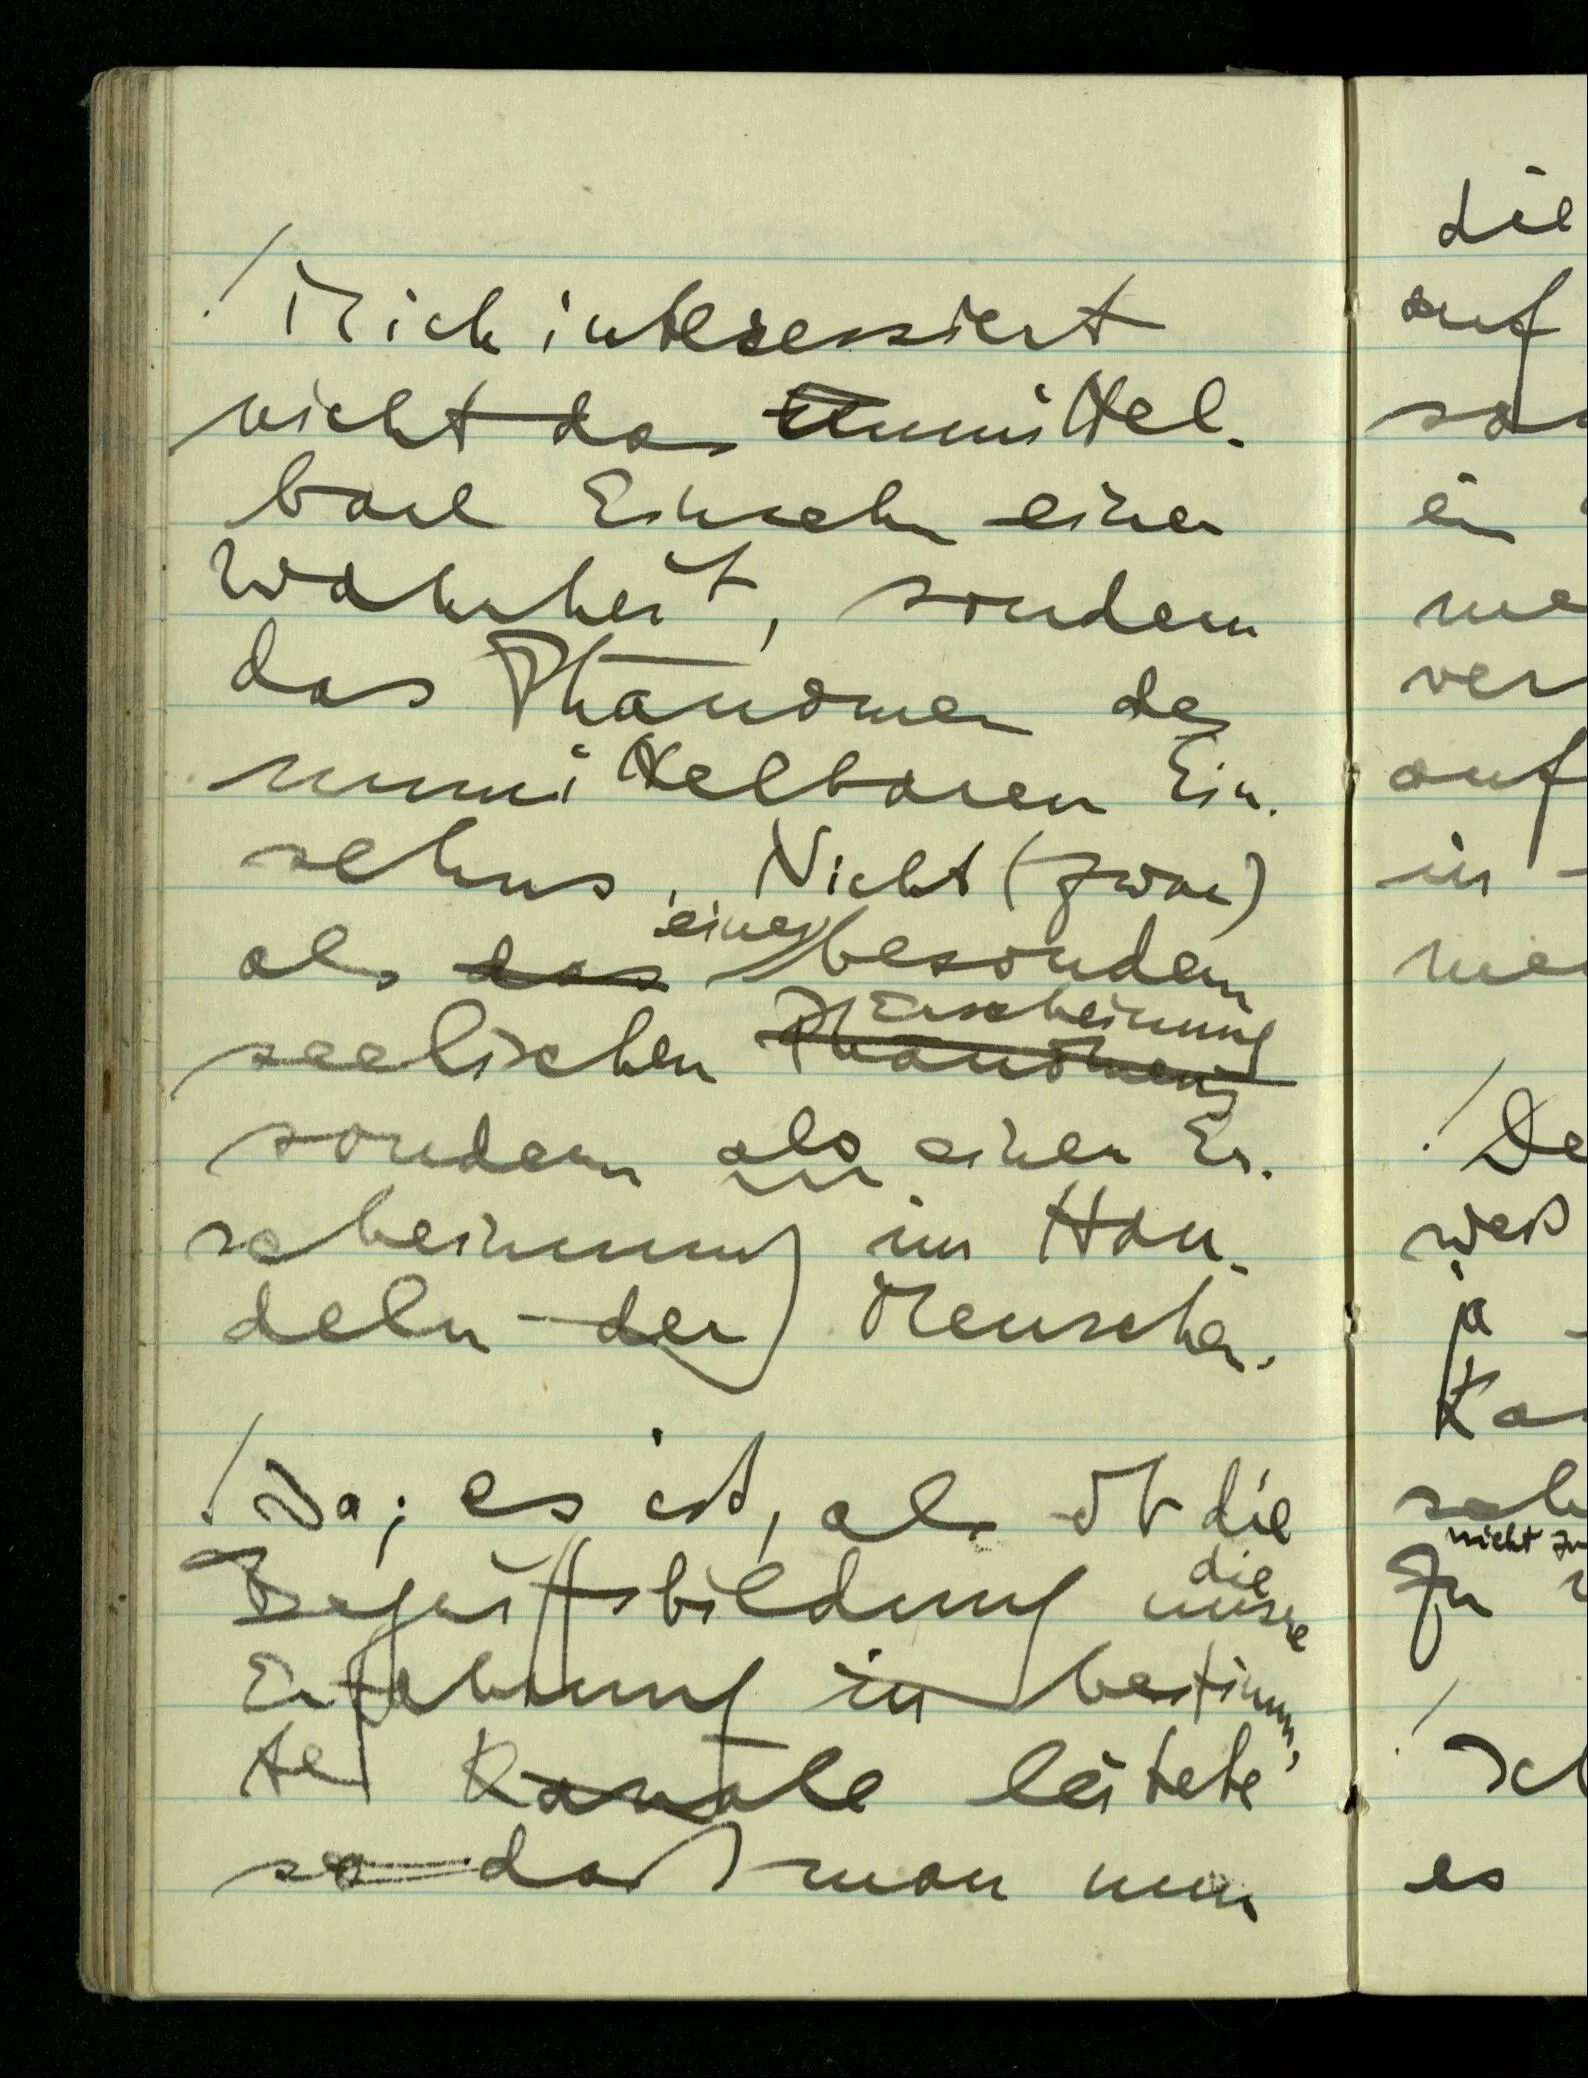 / Mich interessiert
nicht das unmittel-
bare Einsehen einer
Wahrheit, sondern
das Phänomen des
unmittelbaren Ein-
sehens. Nicht (zwar)
als das einer besondern
seelischen Phänomens Erscheinung
sondern als einer Er-
scheinung im Han-
deln der Menschen.
/ Ja; es ist, als ob die
Begriffsbildung die
unsere
Erfahrung in bestimm-
te Kanäle leitete
so daß man nun
die
auf
ein
auf
in
/ De
weiß
ja
nicht zu
zu
/ Ich
es